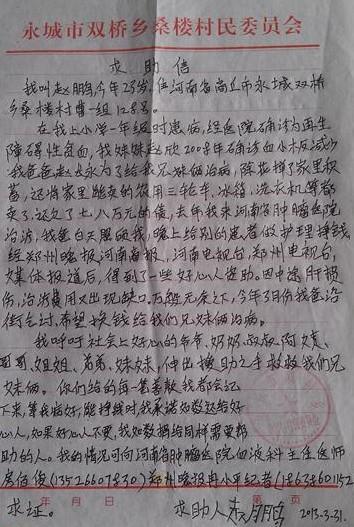 永城市双桥乡桑楼村民委员会
求助信
我叫赵鹏今年23岁。住河南省商丘市永城双桥
乡桑楼村曹一组128号
在我上小学一年级时患病,经医院确诊为再生
障碍性贫血,我妹妹赵欣2008年确诊血小板减少
我爸爸赵永为了给我兄妹俩治病,除花掉了家里积
蓄,还将家里能卖的农用三轮车,冰箱,洗衣机等都
卖了。还欠了七八万元的债,去年我来河南省肿瘤医院
治治,我爸白天照顾我,晚上给别的患者做护理挣钱
经郑州晚报河南商报,河南电视台,郑州电视台,
媒体报道后,得到了一些好心人资助。因中途肝损
伤,治治费用又出现缺口。万般无奈之下,今年3月份我爸沿
街乞讨,希望换钱给我们兄妹俩治病。
我呼吁社会上好心的爷爷、奶奶、叔叔、阿姨、
哥哥、姐姐、弟弟、妹妹,伸出援助之手救救我们兄
妹俩。你们给的每一笔善款我都会记
下来,等我病好,能挣钱时,我承诺如数还给好
心人,如果好心人不要,我如数捐给同样需要帮
助的人。我的情况可向河南省肿瘤医院血液科主任医师
房佰俊(13526607830)郑州晚报冉小平记者(18638601152
求证。 年 月 日 第 页
求助人:赵鹏 2013.3.31.